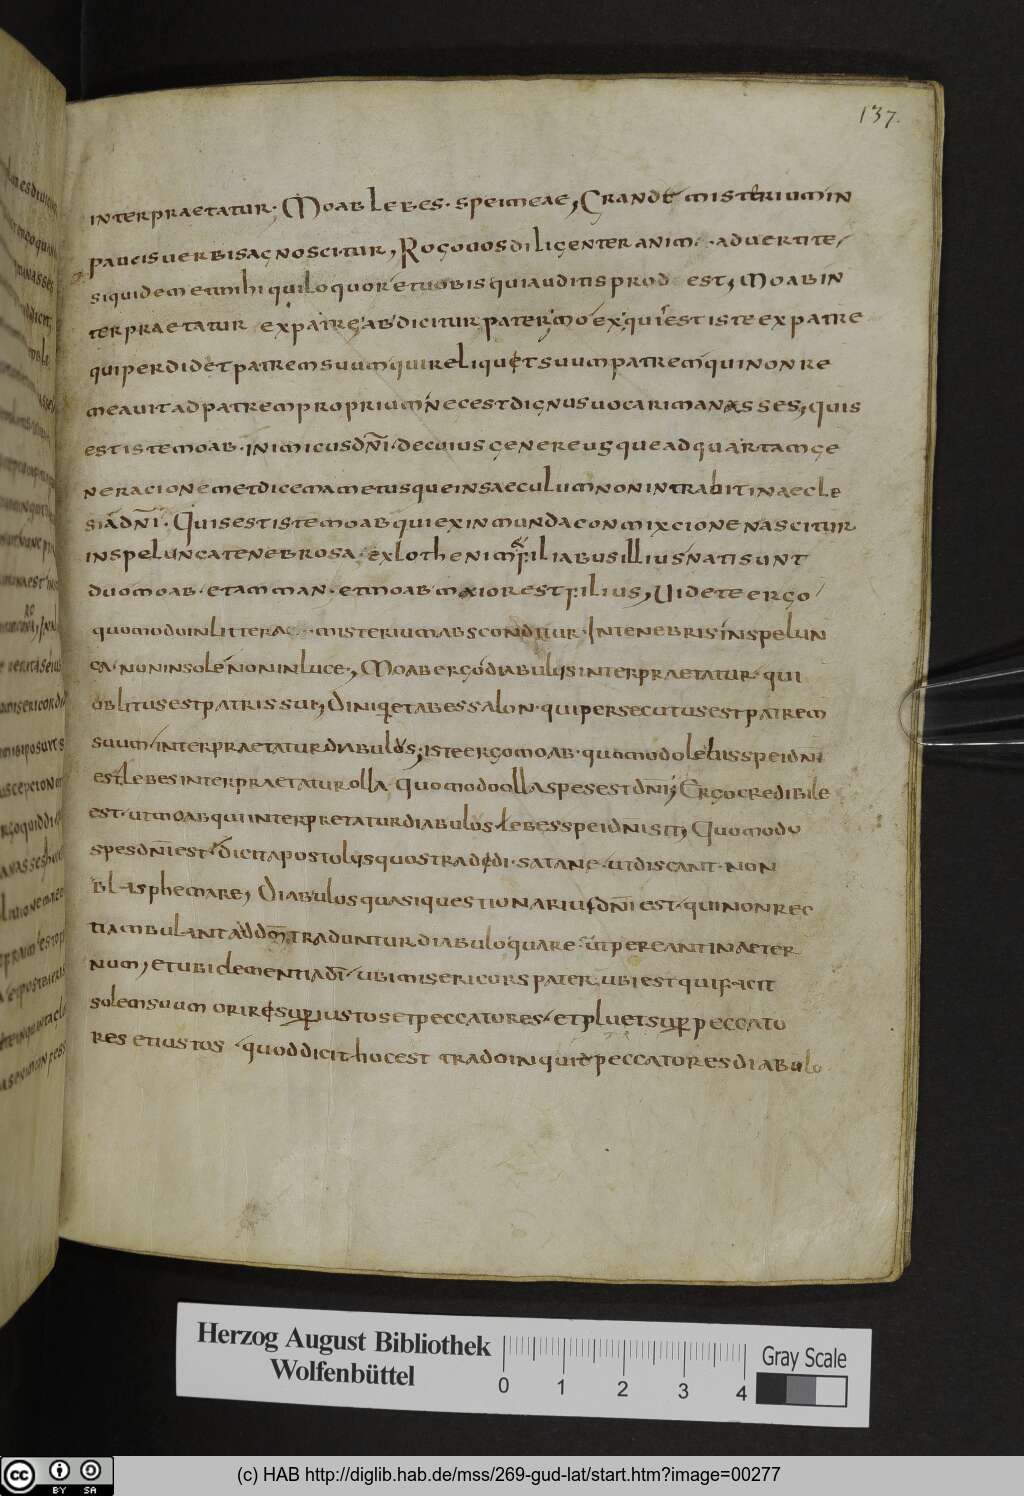 137.
interpraetatur· Moab lebes· spei meae, Grande misterium in
paucis uerbis agnoscitur, Rogo uos diligenter anim aduertite
siquidem et mihi qui loquor et uobis qui auditis prod est, Moab in
terpraetatur ex patre, ab dicitur pater, mo ex, qui est iste ex patre
qui perdidet patrem suum qui reliquet suum patrem qui non re
meauit ad patrem proprium nec est dignus uocari manasses, quis
est iste moab· inimicus dñi· de cuius genere usque ad quartam ge
neracionem et dicemam etusque in saeculum non intrabit in aecle
sia dñi· Quis est iste moab qui ex inmunda conmixcione nascitur
in spelunca tenebrosa· ex loth enim ex filiabus illius nati sunt
duo moab· et amman· et moab maxior est filius, Uidete ergo
quomodo in littera misterium absconditur· In tenebris in spelun
ca· non in sole non in luce·, Moab ergo diabulus interpraetatur· qui
oblitus est patris sui, Diniq; et abessalon· qui persecutus est patrem
suum interpraetatur diabulus; iste ergo moab· quomodo lebis spei dñi
est lebes interpraetatur olla quomodo olla spes est dñi; Ergo credibile
est· ut moab qui interpretatur diabulos· lebes spei dñi sit, Quomodo
spes dñi est· dicit apostolus quos tradedi· satane· ut discant· non
blasphemare, Diabulos quasi questionarius dñi est· qui non rec
ti ambulant ad dm̄, traduntur diabulo quare· ut pereant in aeter
num, et ubi clementia dī ubi misericors pater, ubi est qui facit
solem suum orire super iustos et peccatores· et pluet super peccato
res et iustos quod dicit hoc est trado inquid peccatores diabulo
Herzog August Bibliothek
Wolfenbüttel
0 1 2 3 4
Gray Scale
cc BY SA
(c) HAB http://diglib.hab.de/mss/269-gud-lat/start.htm?image=00277